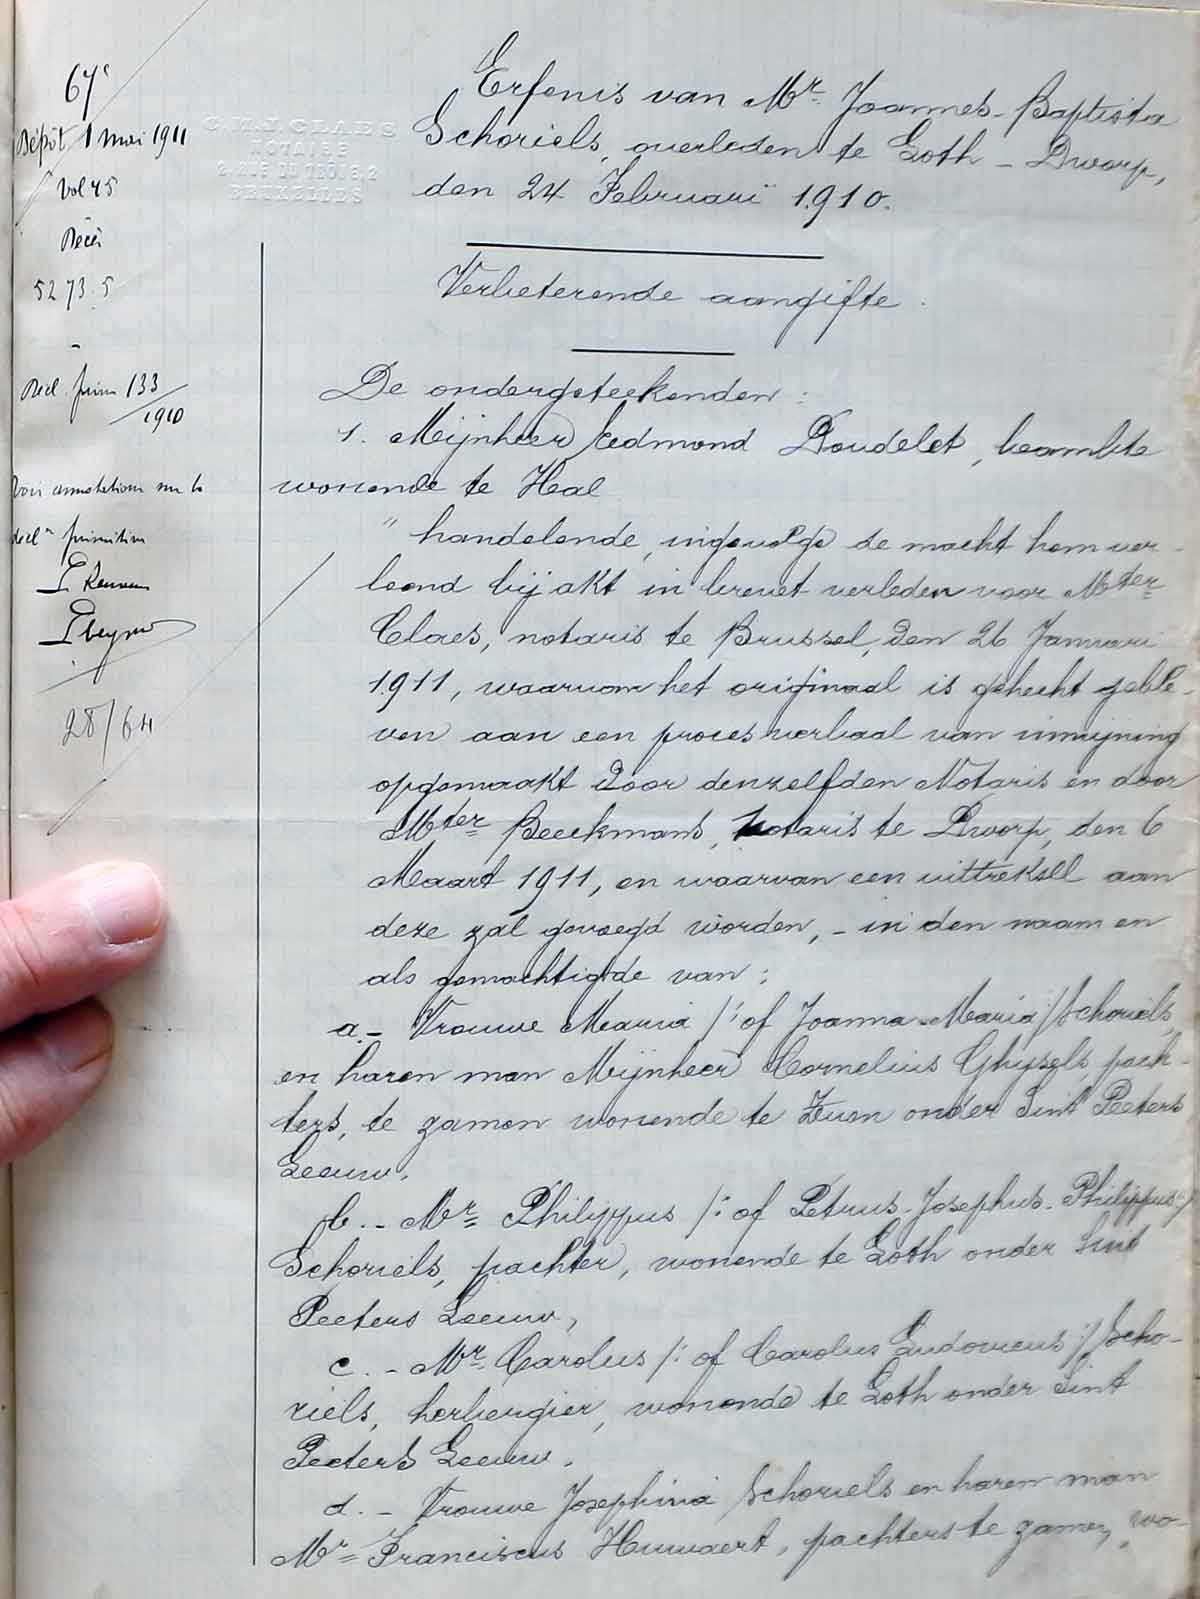 67e
Dépôt 1 mai 1911
vol 45
Décès
5273.5
Decl. prim 133/1910
Voir annotations sur la
decl.n primitive
28/64
C.M.J. CLAES
NOTAIRE
2, RUE DU TRÔNE, 2
BRUXELLES
Erfenis van Mr. Joannes-Baptista
Schoriels, overleden te Loth - Dworp,
den 24 Februari 1910.
Verbeterende aangifte.
De ondergeteekenden:
1. Mijnheer Edmond Doudelet, beambte
wonende te Hal
" handelende, ingevolge de macht hem ver-
leend bij akt in brevet verleden voor Mter
Claes, notaris te Brussel, den 26 Januari
1911, waarvan het origineel is gehecht geble-
ven aan een proces verbaal van inmijning
opgemaakt door denzelfden Notaris en door
Mter Beeckmans, Notaris te Dworp, den 6
Maart 1911, en waarvan een uittreksel aan
deze zal gevoegd worden, - in den naam en
als gemachtigde van:
a.- Vrouwe Maria /: of Joanna-Maria :/ Schoriels,
en haren man Mijnheer Cornelius Ghysels, pach-
ters, te zamen wonende te Zuen onder Sint Peeters
Leeuw.
b.- Mr Philippus /: of Petrus-Josephus-Philippus :/
Schoriels, pachter, wonende te Loth onder Sint
Peeters Leeuw,
c.- Mr. Carolus /: of Carolus Ludovicus :/ Scho-
riels, herbergier, wonende te Loth onder Sint
Peeters Leeuw.
d.- Vrouwe Josephina Schoriels en haren man
Mr Franciscus Huwaert, pachters te zamen wo-